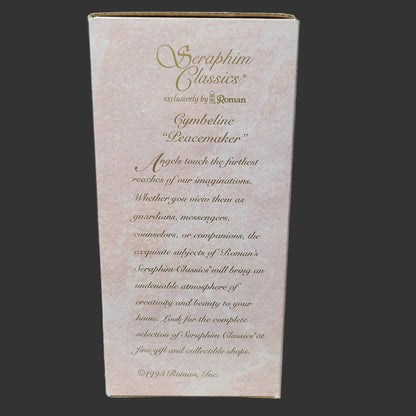 Seraphim
Classics®
exclusively by Roman
Cymbeline
"Peacemaker"
Angels touch the furthest
reaches of our imaginations.
Whether you view them as
guardians, messengers,
counselors, or companions, the
exquisite subjects of Roman's
Seraphim Classics® will bring an
undeniable atmosphere of
creativity and beauty to your
home. Look for the complete
selection of Seraphim Classics® at
fine gift and collectible shops.
©1998 Roman, Inc.